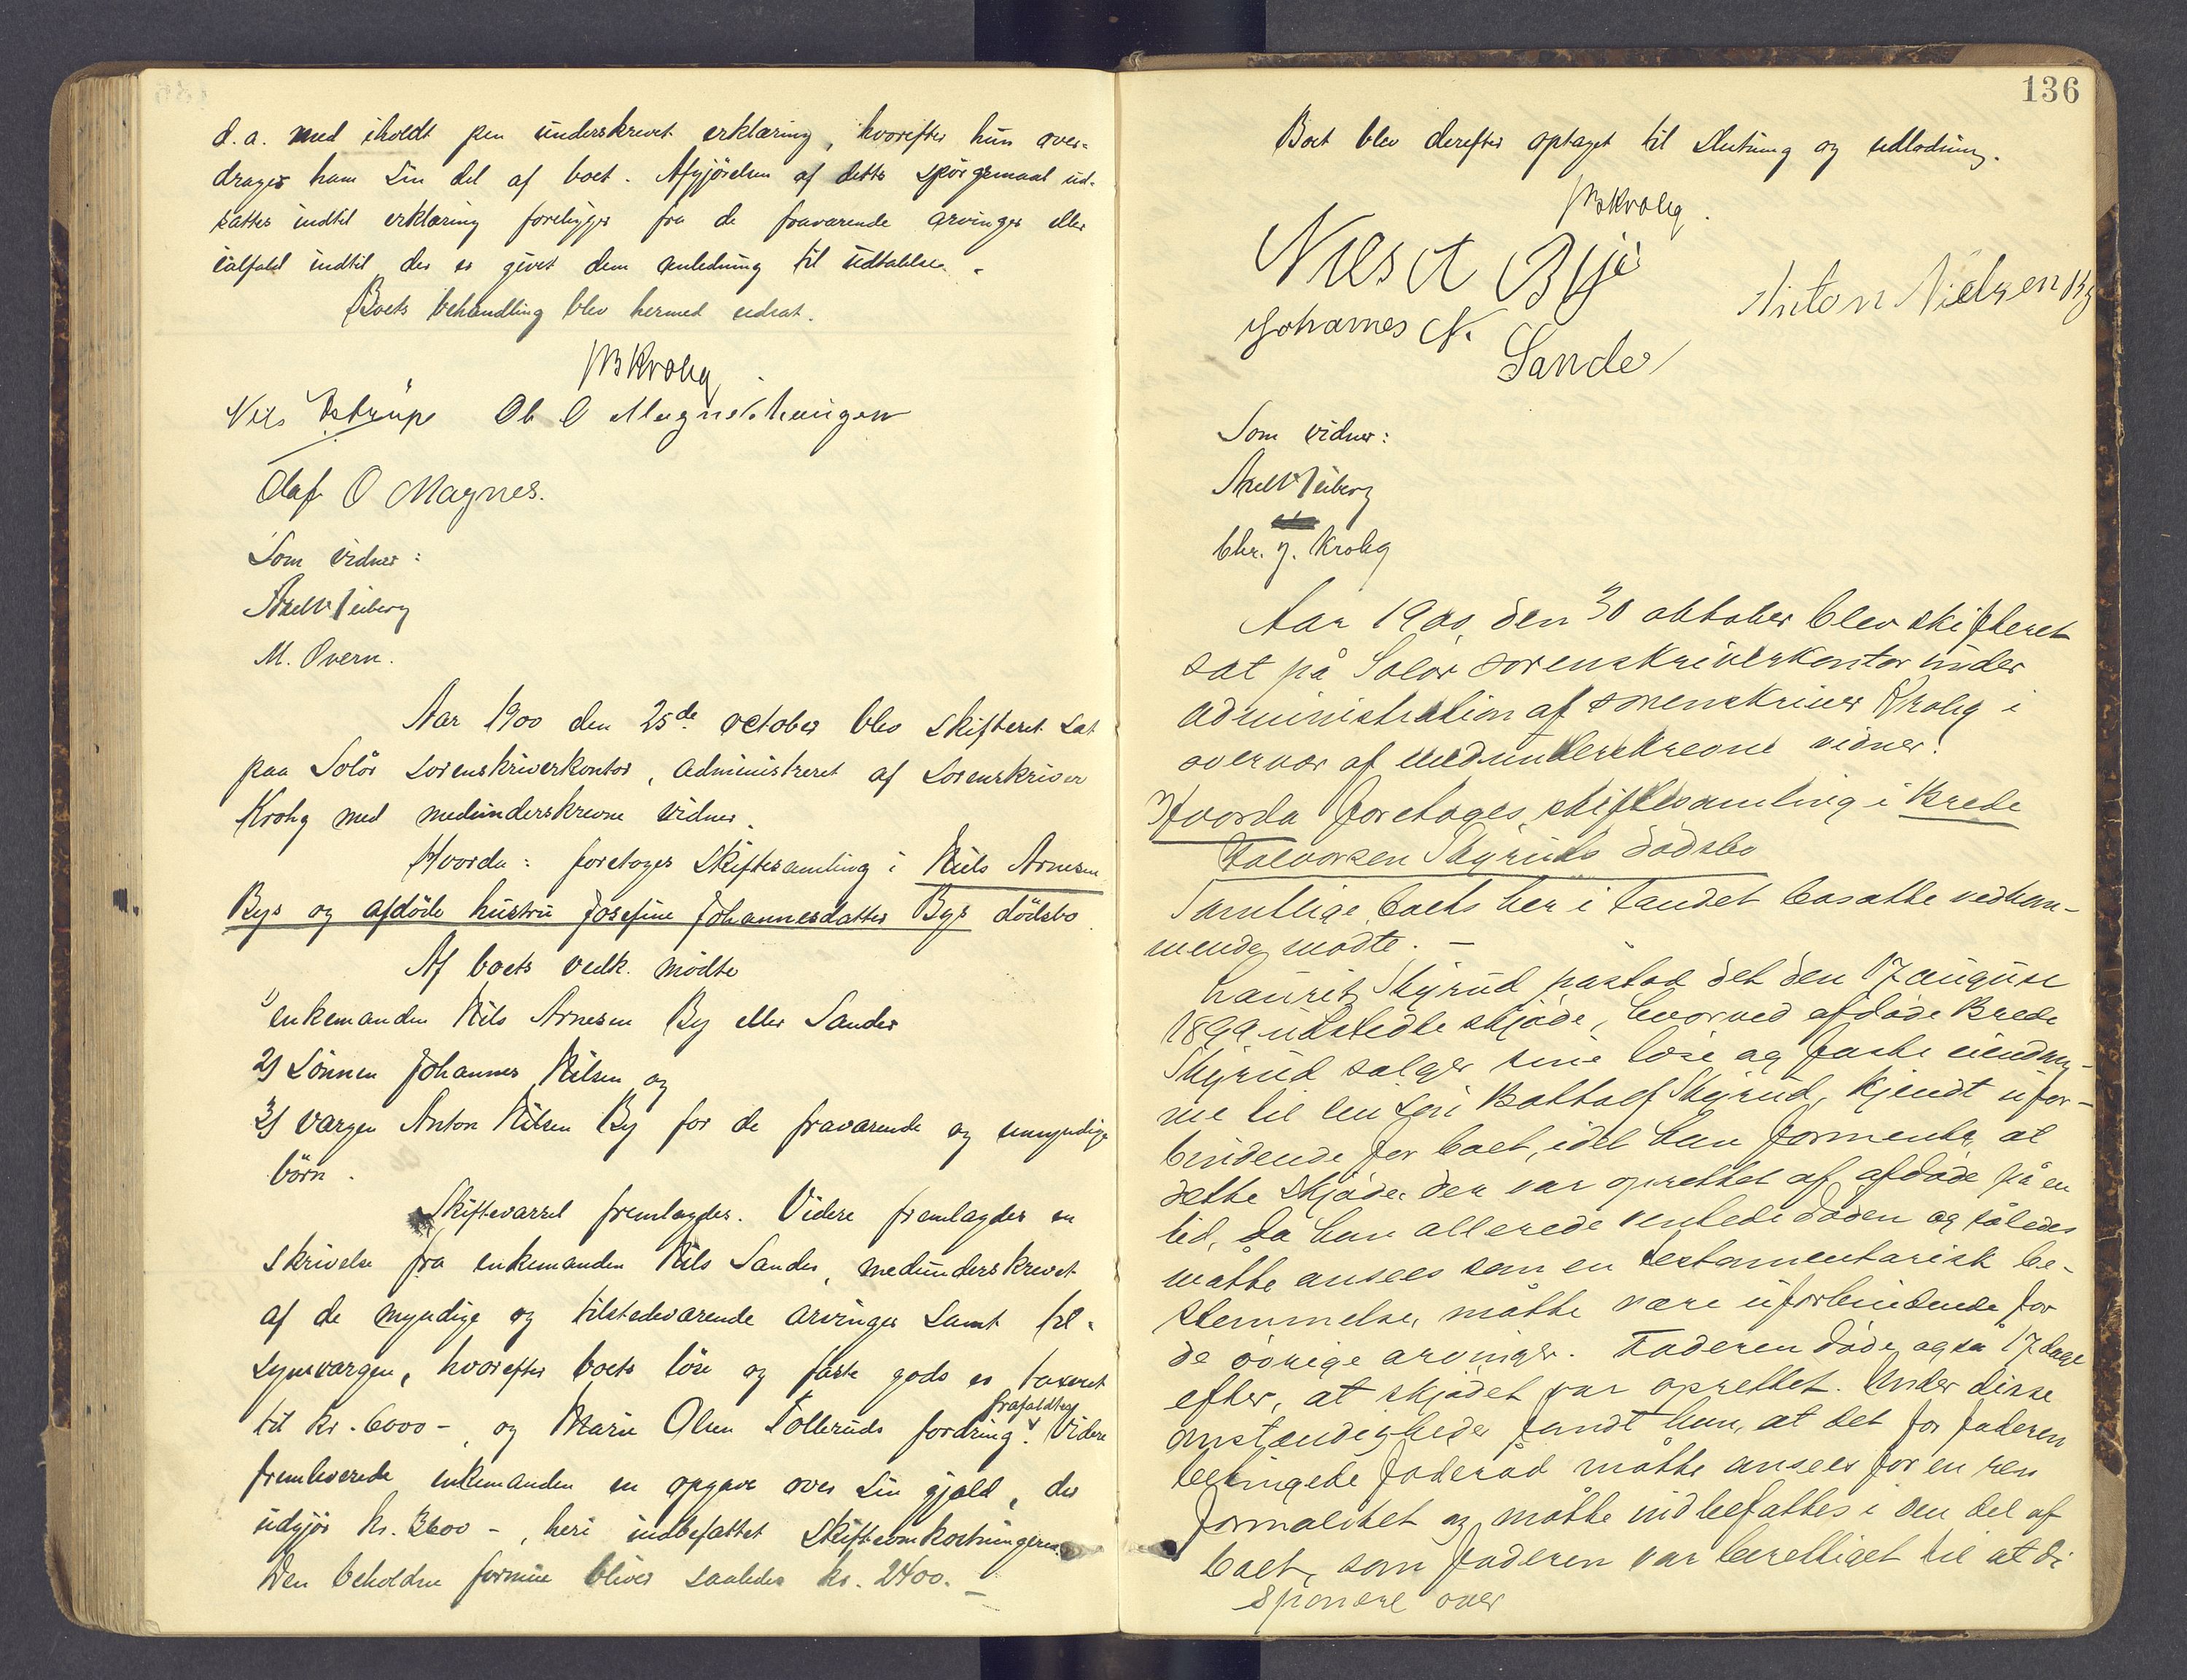 d. a. med iholdt pen underskrevet erklæring, hvorefter hun over-
drager ham sin del af boet. Afgjörelsen af dette spörgsmaal ud-
sattes indtil erklæring foreligger fra de fraværende arvinger eller
ialfald indtil der er givet dem anledning til udtalelse.
Boets behandling blev hermed udsat.
Krohg
Nils Ole O Magnes
Olaf O Magnes.
Som vidner:
Axel Heiberg
M. Overn.
Aar 1900 den 25de october blev skifteret sat
paa Solör sorenskriverkontor, administreret af sorenskriver
Krohg med medunderskrevne vidner.
Hvorda: foretoges skiftesamling i Nils Arnesen
Bys og afdöde hustru Josefine Johannesdatter Bys dödsbo.
Af boets vedk. mödte
1) enkemanden Nils Arnesen By eller Sander
2) Sönnen Johannes Nilsen og
3) værgen Anton Nilsen By for de fraværende og umyndige
börn.
Skiftevarsel fremlagdes. Videre fremlagdes en
skrivelse fra enkemanden Nils Sander, medunderskrevet
af de myndige og tilstedeværende arvinger samt til-
synsværgen, hvorefter boets löse og faste gods er taxeret
til kr. 6000 -, og Marie Olsen Tolleruds fordring frafaldtes. Videre
fremleverede enkemanden en opgave over sin gjæld, der
udgjör kr. 3600 -, heri indbefattet skifteomkostningerne.
Den beholdne formue bliver saaledes kr. 2400. -
136
Boet blev derefter optaget til slutning og udlodning.
Krohg.
Nils A By
Anton Nielsen By
Johannes N.
Sander
Som vidner:
Axel Heiberg
Chr. J. Krohg
Aar 1900 den 30 oktober blev skifteret
sat på Solör sorenskriverkontor under
administration af sorenskriver Krohg i
overvær af medunderskrevne vidner!
Hvorda foretoges skiftesamling i Brede
Halvorsen Skyruds dödsbo
Samtlige boets her i landet bosatte vedkom-
mende mödte. -
Laurits Skyrud påstod det den 17 august
1899 udstedte skjöde, hvorved afdöde Brede
Skyrud sælger sine löse og faste eiendom-
me til sin sön Botholf Skyrud, kjendt ufor-
bindende for boet, idet han formente, at
dette skjöde, der var oprettet af afdöde på en
tid, da han allerede ventede döden og således
måtte ansees som en testamentarisk be-
stemmelse, måtte være uforbindende for
de övrige arvinger. Faderen döde også 17 dage
efter, at skjödet var oprettet. Under disse
omstændigheder fandt han, at det for faderen
betingede föderåd måtte ansees for en ren
formalitet og måtte indbefattes i den del af
boet, som faderen var berettiget til at di
sponere over